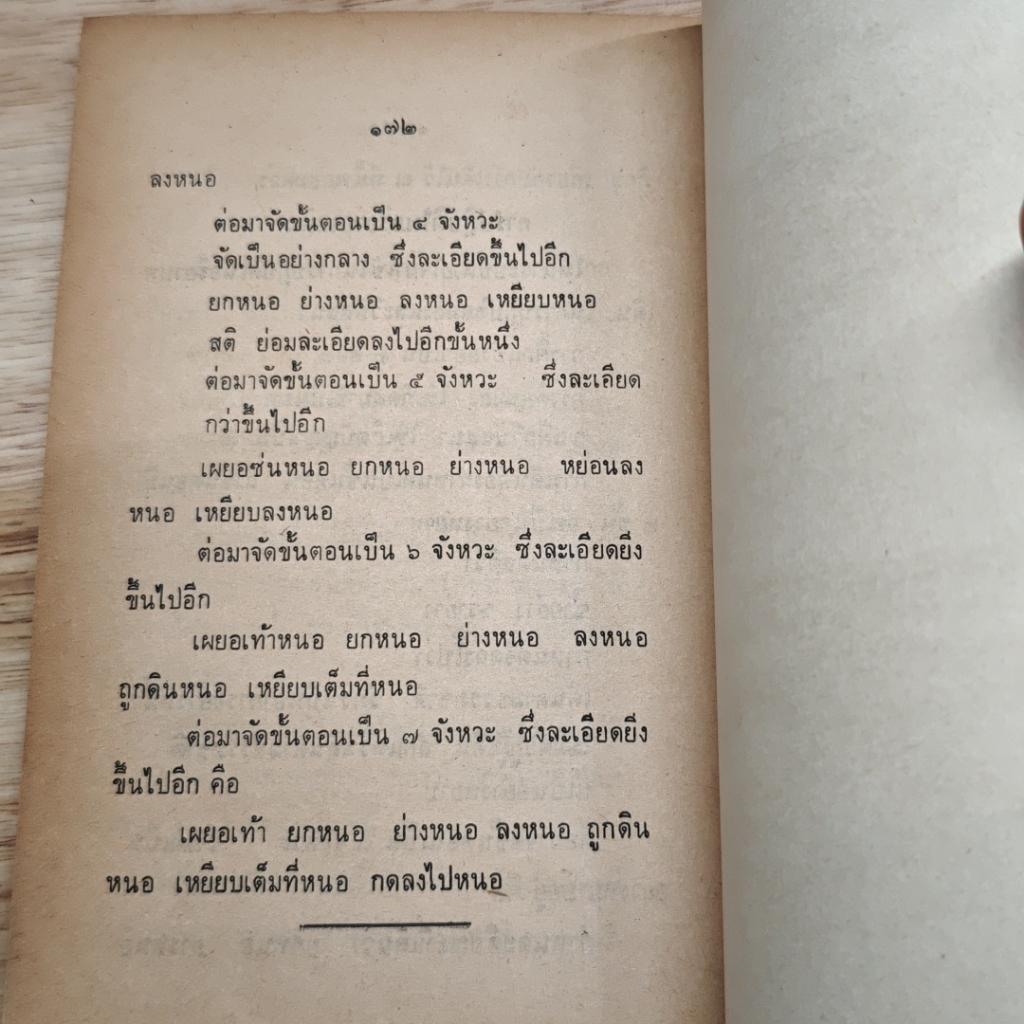 ๑๗๒
ลงหนอ
ต่อมาจัดขั้นตอนเป็น ๔ จังหวะ
จัดเป็นอย่างกลาง ซึ่งละเอียดขึ้นไปอีก
ยกหนอ ย่างหนอ ลงหนอ เหยียบหนอ
สติ ย่อมละเอียดลงไปอีกขั้นหนึ่ง
ต่อมาจัดขั้นตอนเป็น ๕ จังหวะ ซึ่งละเอียด
กว่าขึ้นไปอีก
เผยอซ่นหนอ ยกหนอ ย่างหนอ หย่อนลง
หนอ เหยียบลงหนอ
ต่อมาจัดขั้นตอนเป็น ๖ จังหวะ ซึ่งละเอียดยิ่ง
ขึ้นไปอีก
เผยอเท้าหนอ ยกหนอ ย่างหนอ ลงหนอ
ถูกดินหนอ เหยียบเต็มที่หนอ
ต่อมาจัดขั้นตอนเป็น ๗ จังหวะ ซึ่งละเอียดยิ่ง
ขึ้นไปอีก คือ
เผยอเท้า ยกหนอ ย่างหนอ ลงหนอ ถูกดิน
หนอ เหยียบเต็มที่หนอ กดลงไปหนอ